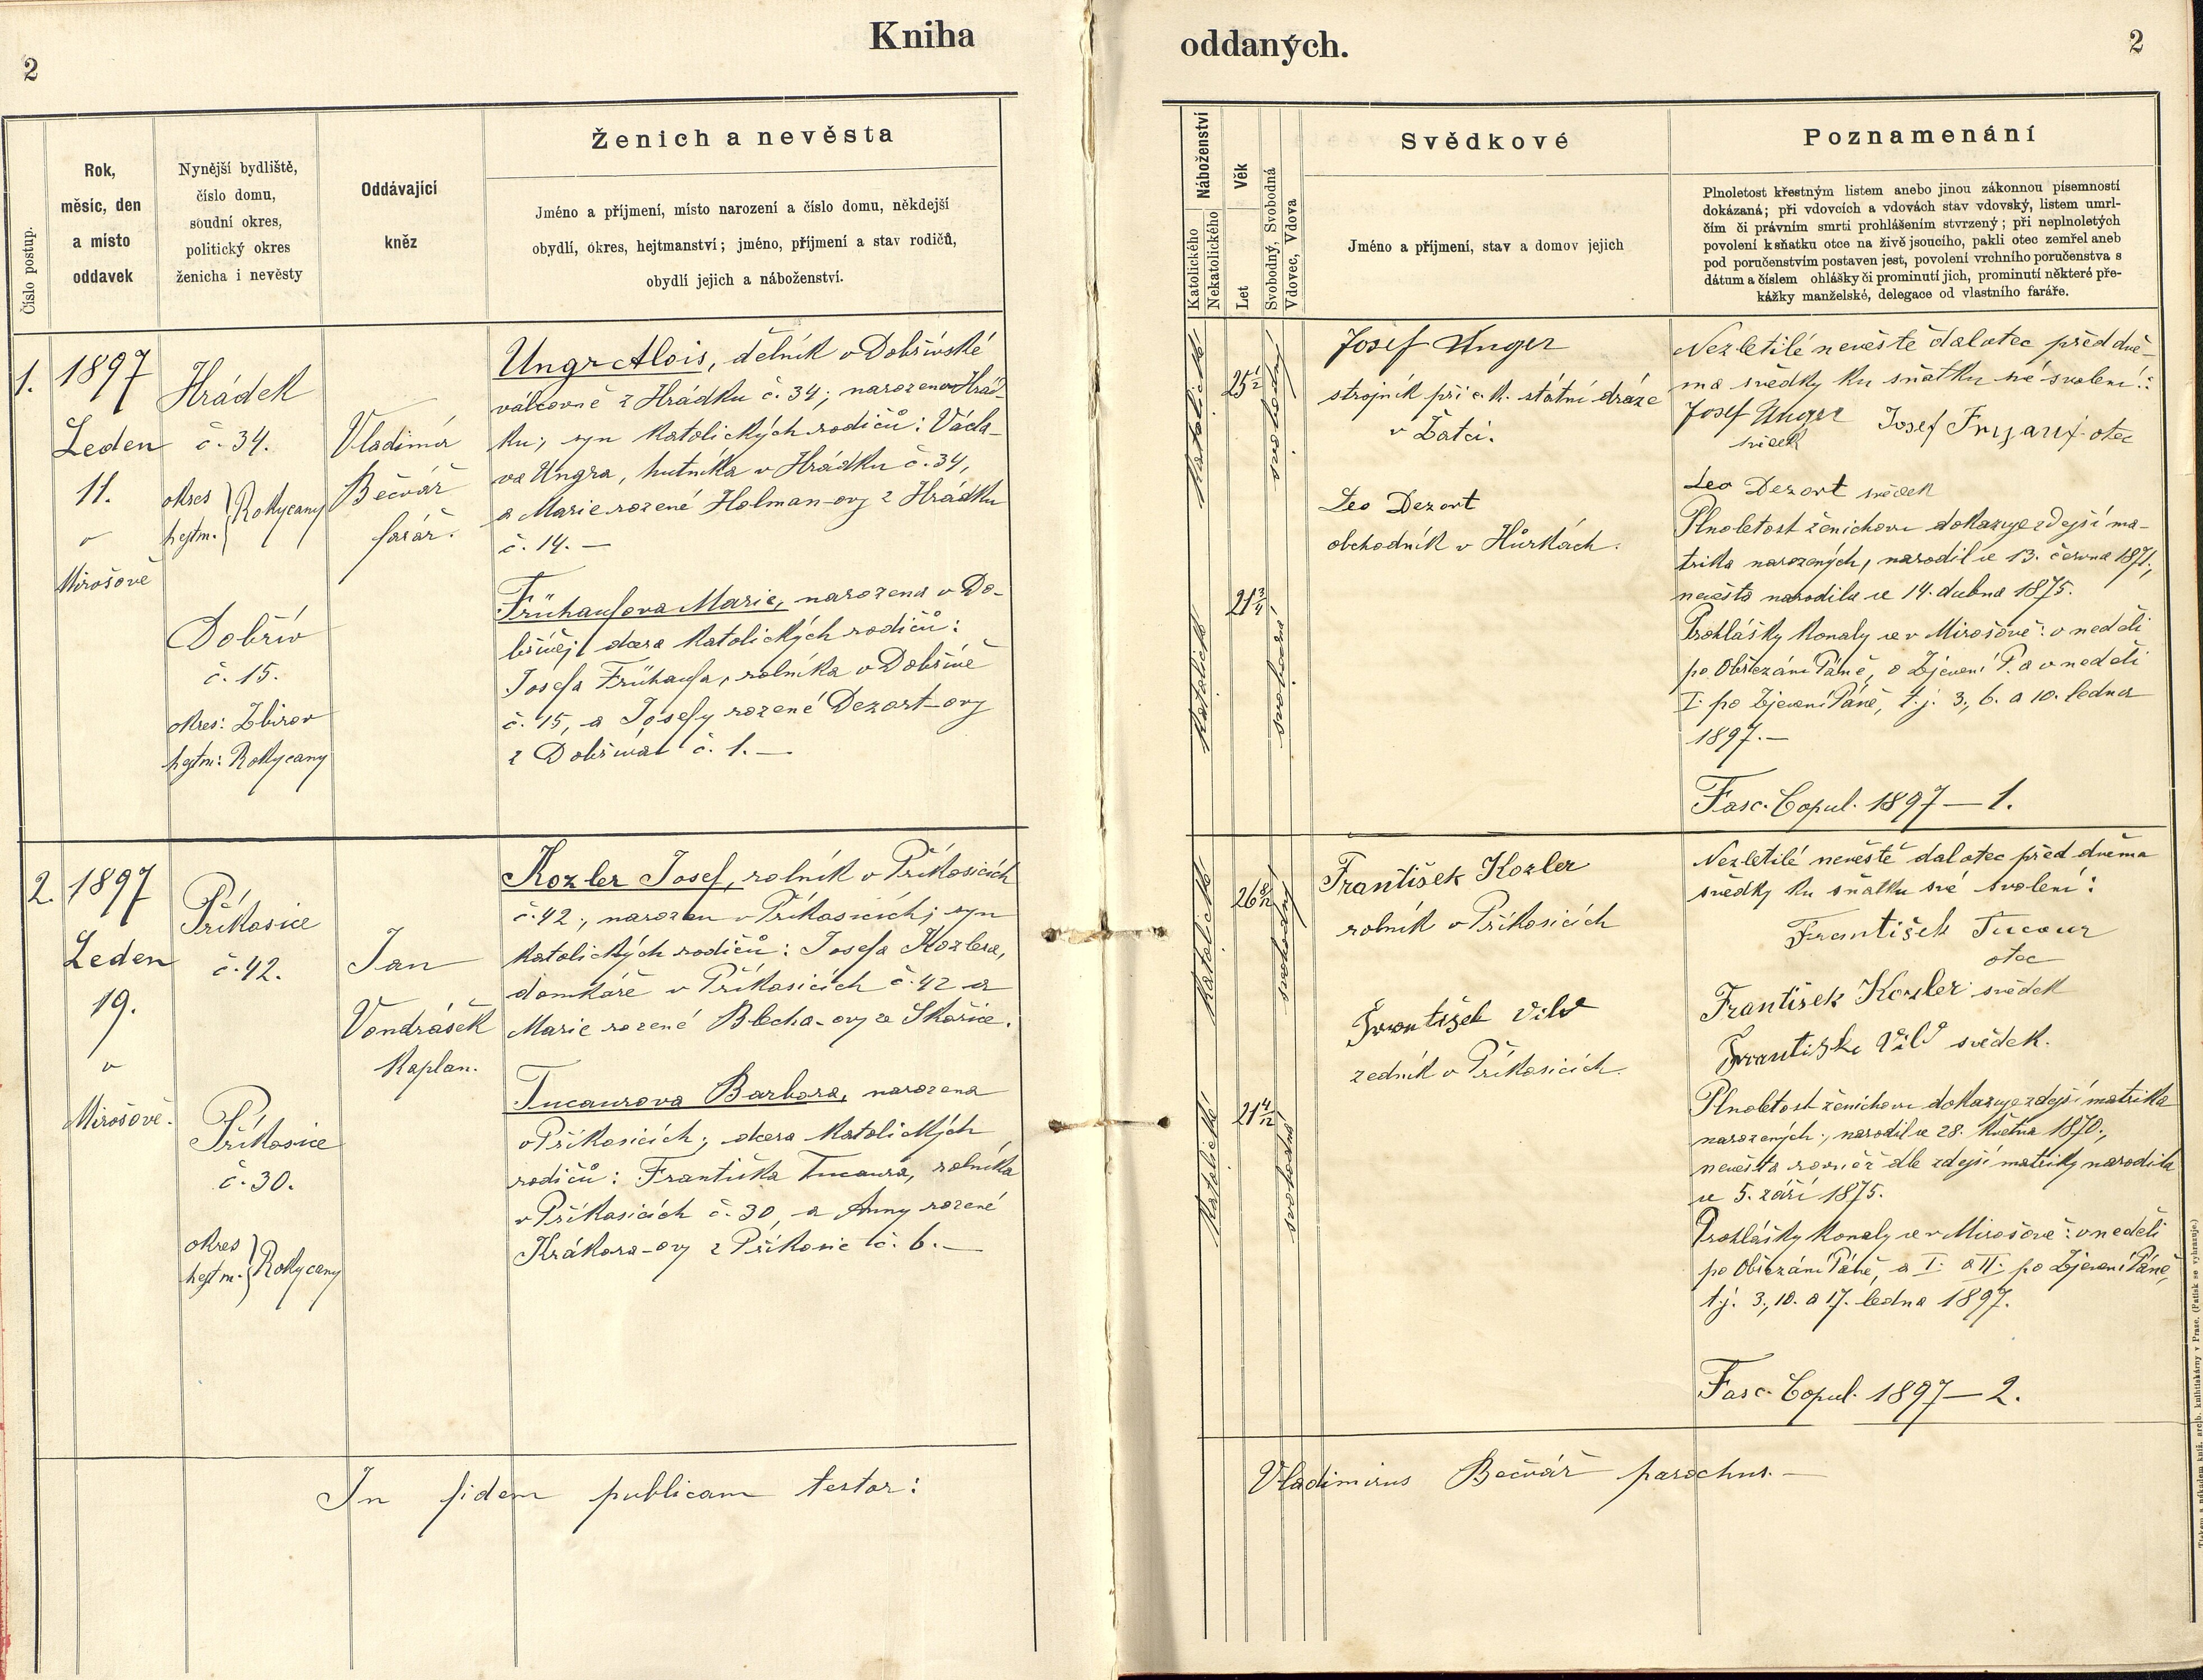 Kniha
2
Číslo postup.
Rok,
měsíc, den
a místo
oddavek
Nynější bydliště,
číslo domu,
soudní okres,
politický okres
ženicha i nevěsty
Oddávající
kněz
Ženich a nevěsta
Jméno a příjmení, místo narození a číslo domu, někdejší
obydlí, okres, hejtmanství; jméno, příjmení a stav rodičů,
obydlí jejich a náboženství.
1.
1897
Leden
11.
v
Mirošově
Hrádek
č. 34.
okres
hejtm. } Rokycany
Dobřív
č. 15.
okres: Zbirov
hejtm: Rokycany
Vladimír
Bečvář
farář.
Ungr Alois, dělník v Dobřívské
válcovně z Hrádku č. 34; narozen v Hrád-
ku; syn katolických rodičů: Václa-
va Ungra, hutníka v Hrádku č. 34,
a Marie rozené Holman-ovy z Hrádku
č. 14. —
Frühaufova Marie, narozena v Do-
břívě; dcera katolických rodičů:
Josefa Frühaufa, rolníka v Dobřívě
č. 15, a Josefy rozené Dezort-ovy
z Dobříva č. 1. —
2.
1897
Leden
19.
v
Mirošově.
Příkosice
č. 42.
Příkosice
č. 30.
okres
hejtm. } Rokycany
Jan
Vondrášek
kaplan.
Kozler Josef, rolník v Příkosicích
č. 42; narozen v Příkosicích; syn
katolických rodičů: Josefa Kozlera,
domkáře v Příkosicích č. 42 a
Marie rozené Blecha-ovy ze Skořice.
Tucaurova Barbora, narozena
v Příkosicích; dcera katolických
rodičů: Františka Tucaura, rolníka
v Příkosicích č. 30, a Anny rozené
Krákora-ovy z Příkosic č. 6. —
In fidem publicam testor:
oddaných.
2
Náboženství
Katolického
Nekatolického
Věk
Let
Svobodný, Svobodná
Vdovec, Vdova
Svědkové
Jméno a příjmení, stav a domov jejich
Poznamenání
Plnoletost křestným listem anebo jinou zákonnou písemností
dokázaná; při vdovcích a vdovách stav vdovský, listem umrl-
čím či právním smrti prohlášením stvrzený; při neplnoletých
povolení k sňatku otce na živě jsoucího, pakli otec zemřel aneb
pod poručenstvím postaven jest, povolení vrchního poručenstva s
dátum a číslem ohlášky či prominutí jich, prominutí některé pře-
kážky manželské, delegace od vlastního faráře.
katolické
25½
svobodný
katolické
21¾
svobodná
Josef Unger
strojník při c. k. státní dráze
v Žatci.
Leo Dezort
obchodník v Hůrkách.
Nezletilé nevěstě dal otec před dvě-
ma svědky ku sňatku své svolení:
Josef Unger
svědek
Josef Fryauf otec
Leo Dezort svědek
Plnoletost ženichovu dokazuje zdejší ma-
trika narozených, narodil se 13. června 1871;
nevěsta narodila se 14. dubna 1875.
Prohlášky konaly se v Mirošově: v neděli
po Obřezání Páně, o Zjevení P. a v neděli
I. po Zjevení Páně, t. j. 3., 6. a 10. ledna
1897. —
Fasc. Copul. 1897 — 1.
katolické
26 8/12
svobodný
katolické
21 4/12
svobodná
František Kozler
rolník v Příkosicích
František Vild
zedník v Příkosicích.
Nezletilé nevěstě dal otec před dvěma
svědky ku sňatku své svolení:
František Tucaur
otec
František Kozler svědek
František Vild svědek.
Plnoletost ženichovu dokazuje zdejší matrika
narozených; narodil se 28. května 1870;
nevěsta rovněž dle zdejší matriky narodila
se 5. září 1875.
Prohlášky konaly se v Mirošově: v neděli
po Obřezání Páně, a I. a II. po Zjevení Páně,
t. j. 3., 10. a 17. ledna 1897.
Fasc. Copul. 1897 — 2.
Vladimirus Bečvář parochus. —
Tiskem a nákladem kníž. arcib. knihtiskárny v Praze. (Patisk se vyhrazuje.)